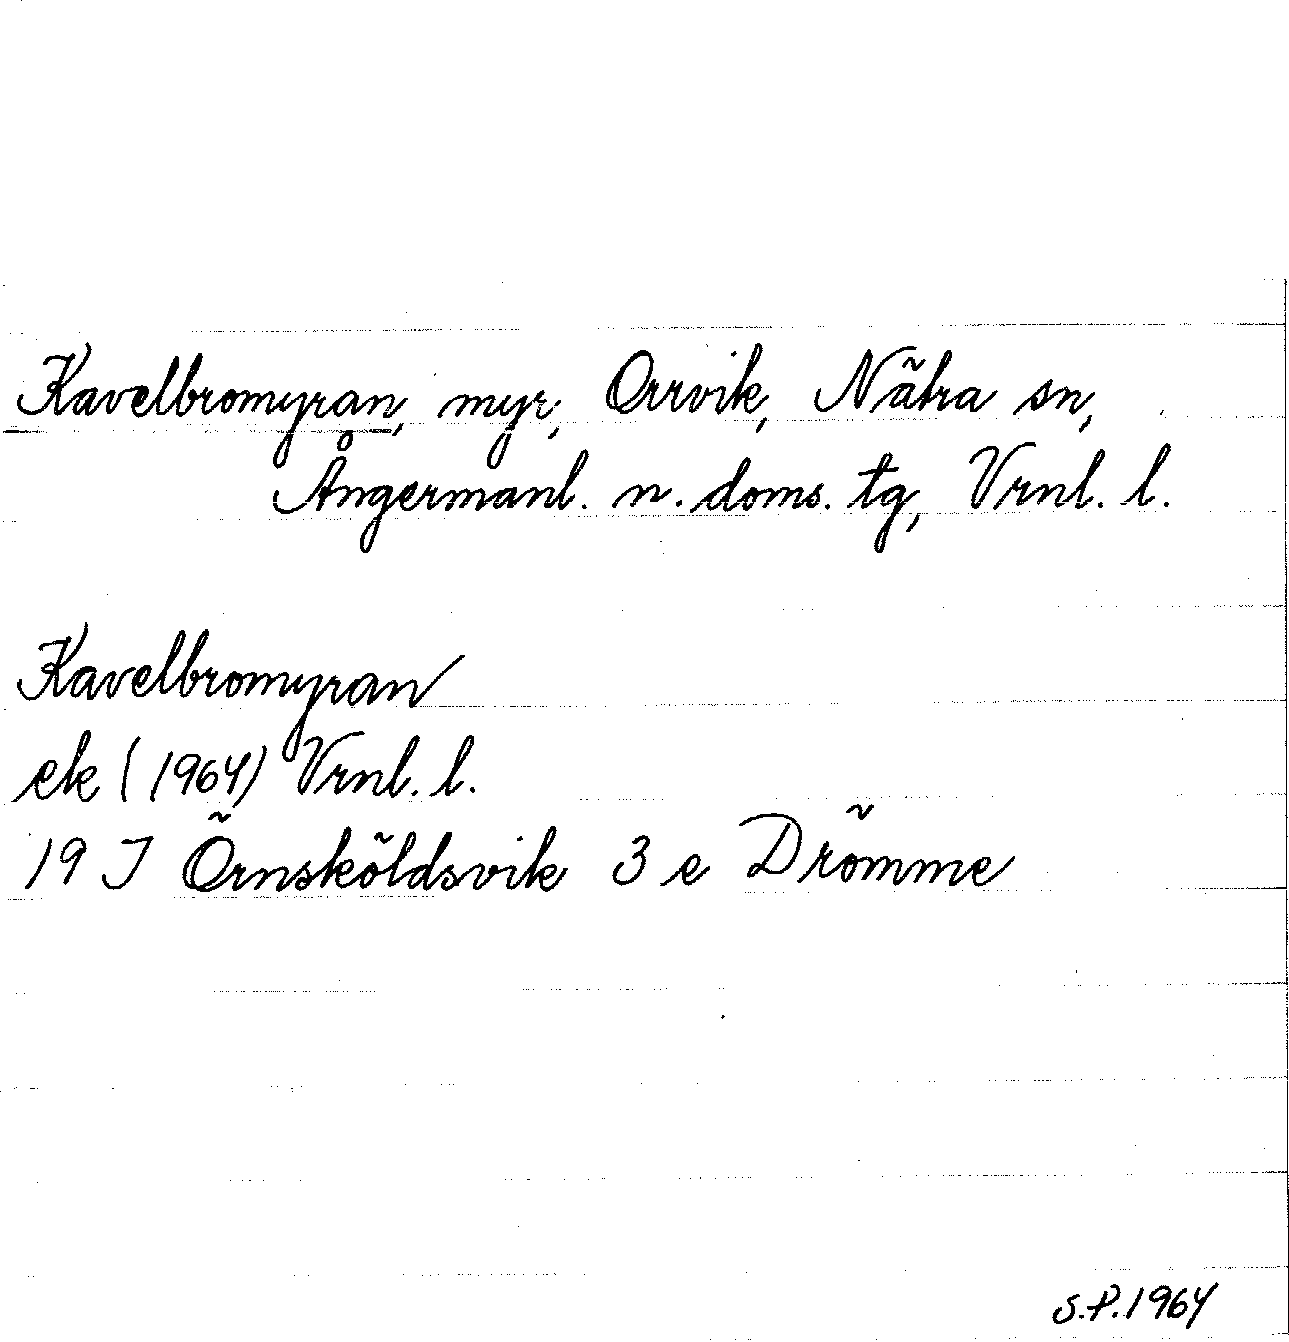 Kavelbromyran, myr, Orrvik, Nätra sn,
Ångermanl. n. doms. tg, Vrnl. l.
Kavelbromyran
ek (1964) Vrnl. l.
19 J Örnsköldsvik 3 e Drömme
S.P. 1964